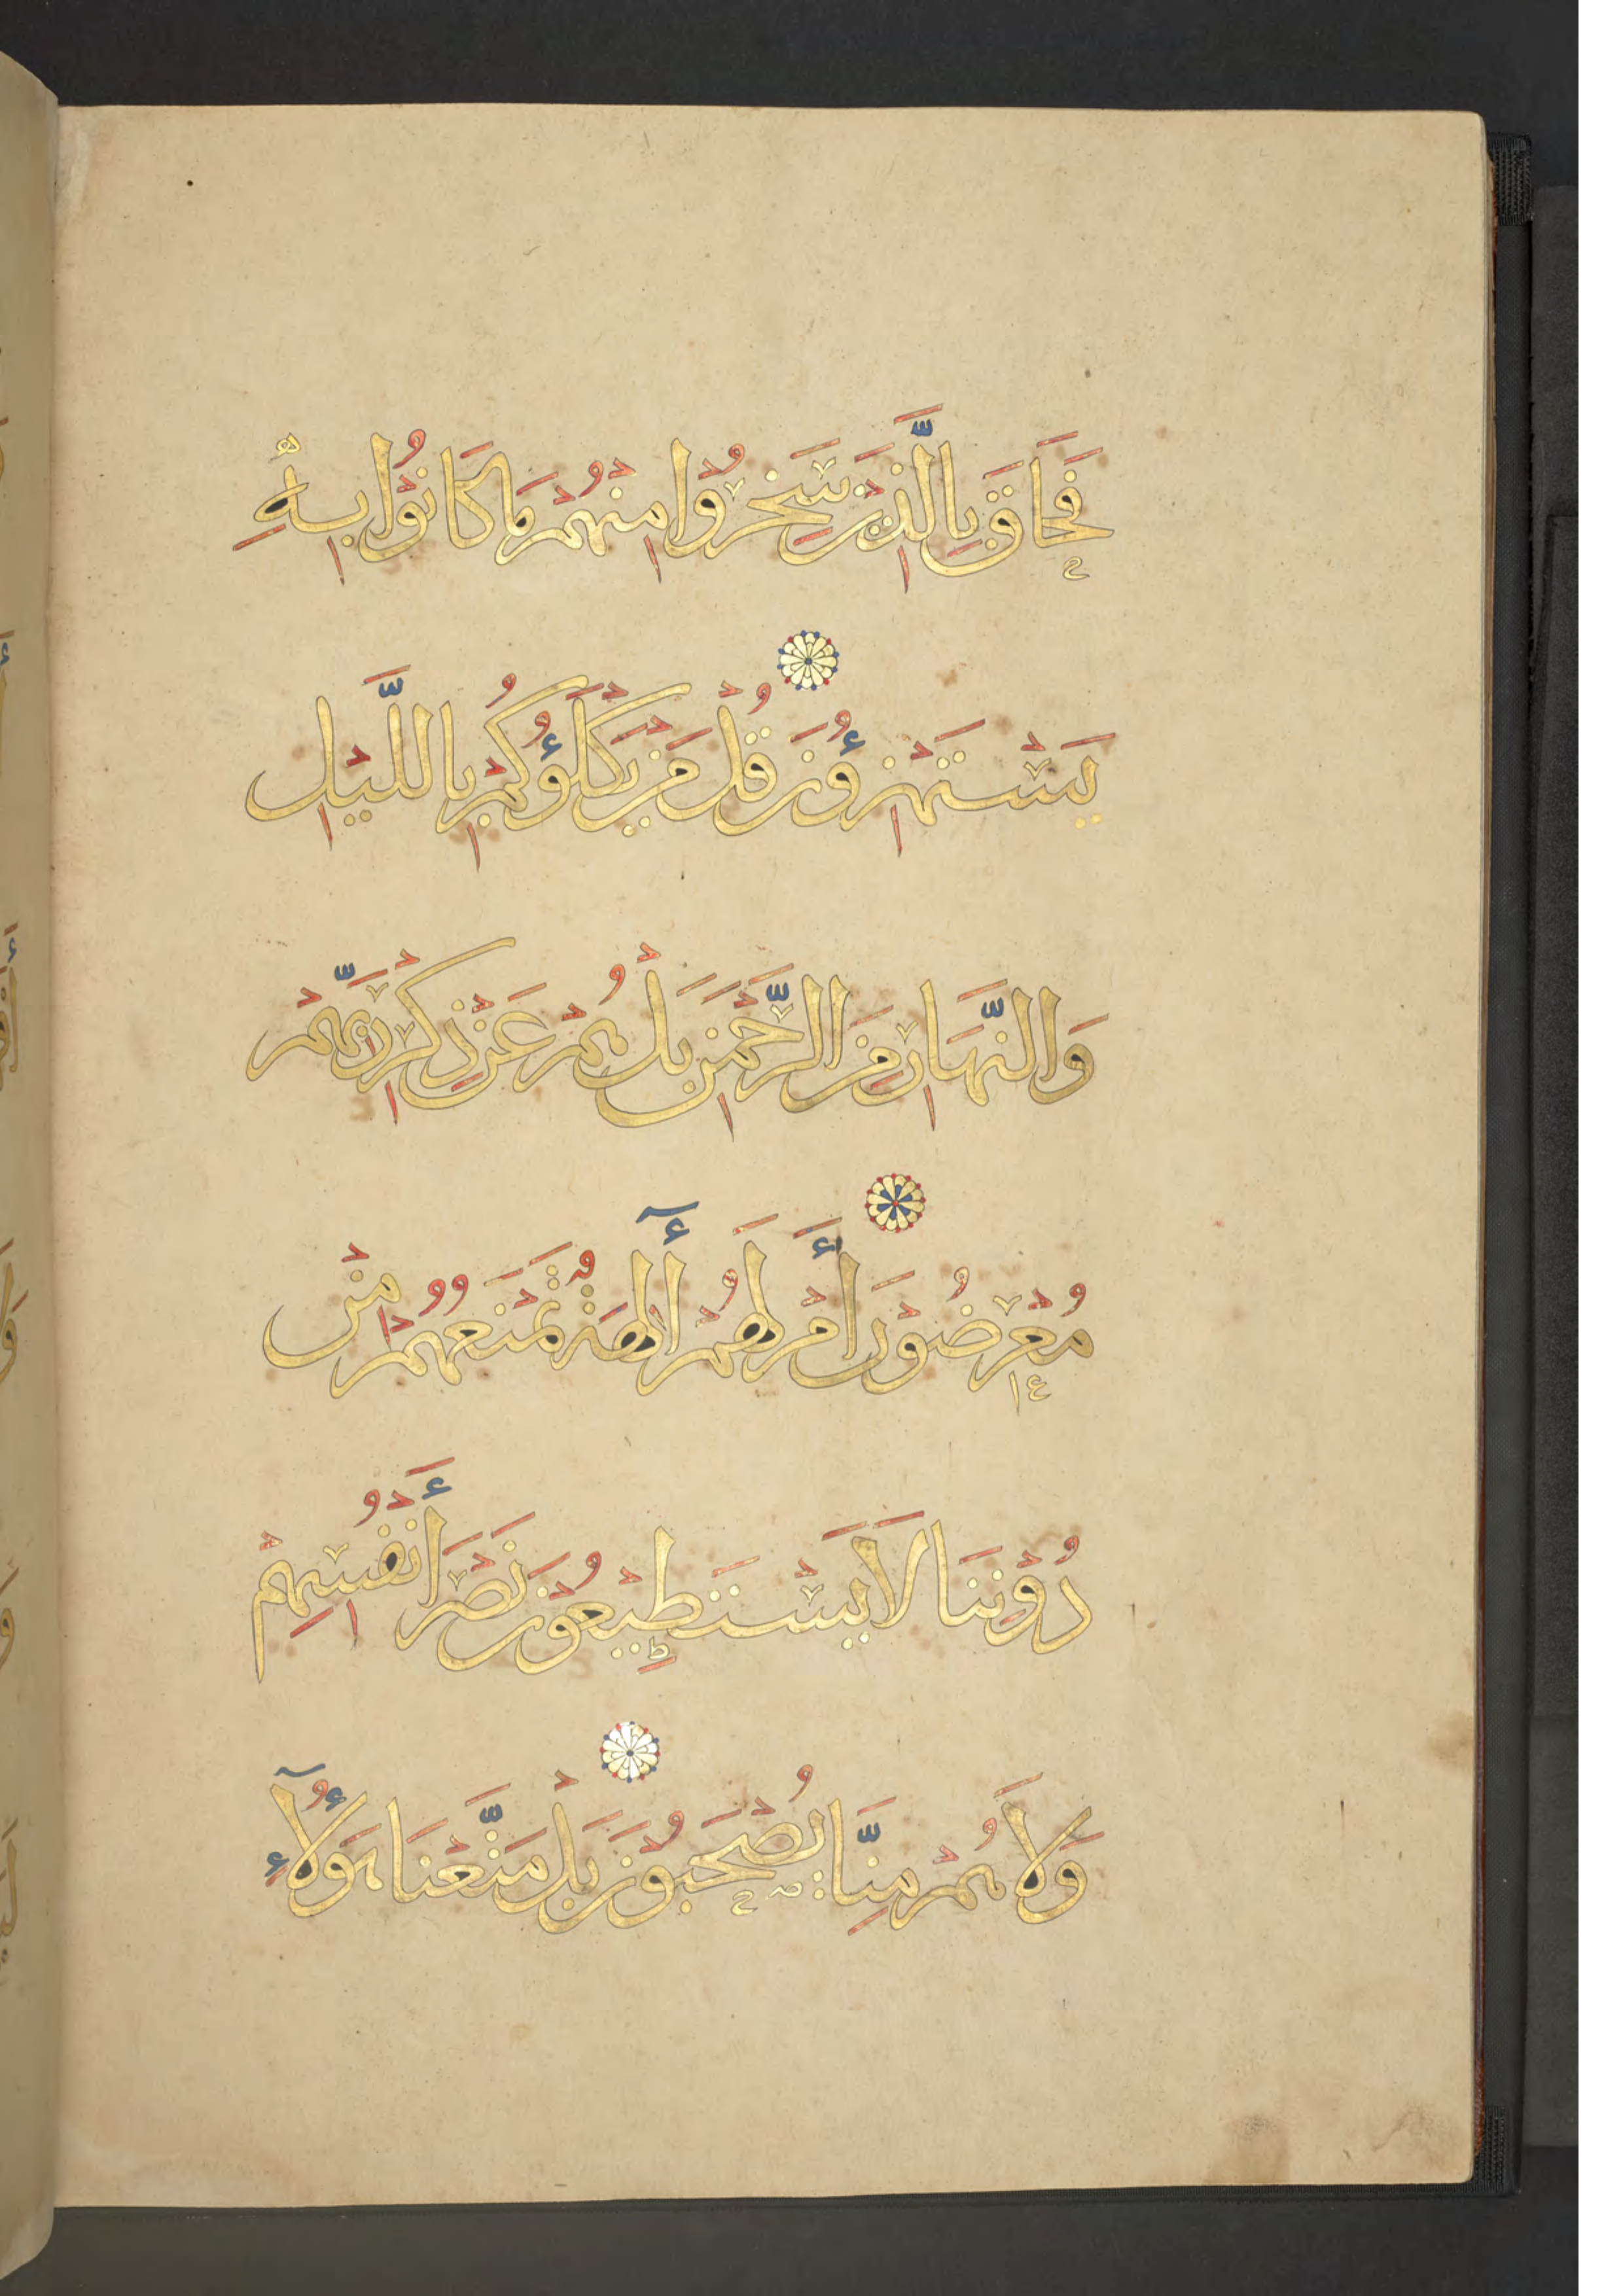 فَحَاقَ بِالَّذِيْنَ سَخِرُوْا مِنْهُمْ مَا كَانُوْا بِهِ
يَسْتَهْزِؤُنَ قُلْ مَنْ يَكْلَؤُكُمْ بِاللَّيْلِ
وَالنَّهَارِ مِنَ الرَّحْمَنِ بَلْ هُمْ عَنْ ذِكْرِ رَبِّهِمْ
مُعْرِضُوْنَ أَمْ لَهُمْ أٓلِهَةٌ تَمْنَعُهُمْ مِنْ
دُوْنِنَا لَا يَسْتَطِيْعُوْنَ نَصْرَ أَنْفُسِهِمْ
وَلَا هُمْ مِنَّا يُصْحَبُوْنَ بَلْ مَتَّعْنَا هَؤُلَآءِ